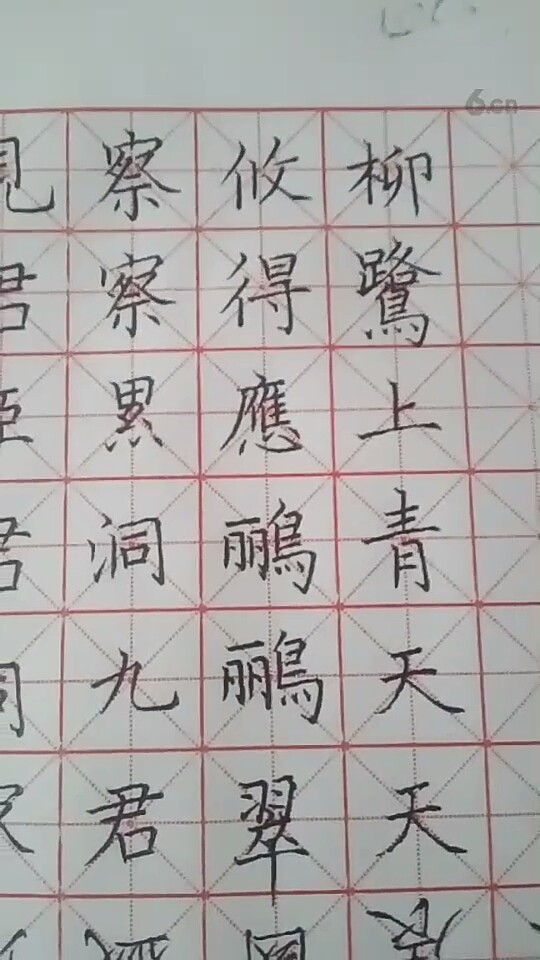 6.cn
柳鷺上青天天
攸得應鸝鸝翠
察察累洞九君